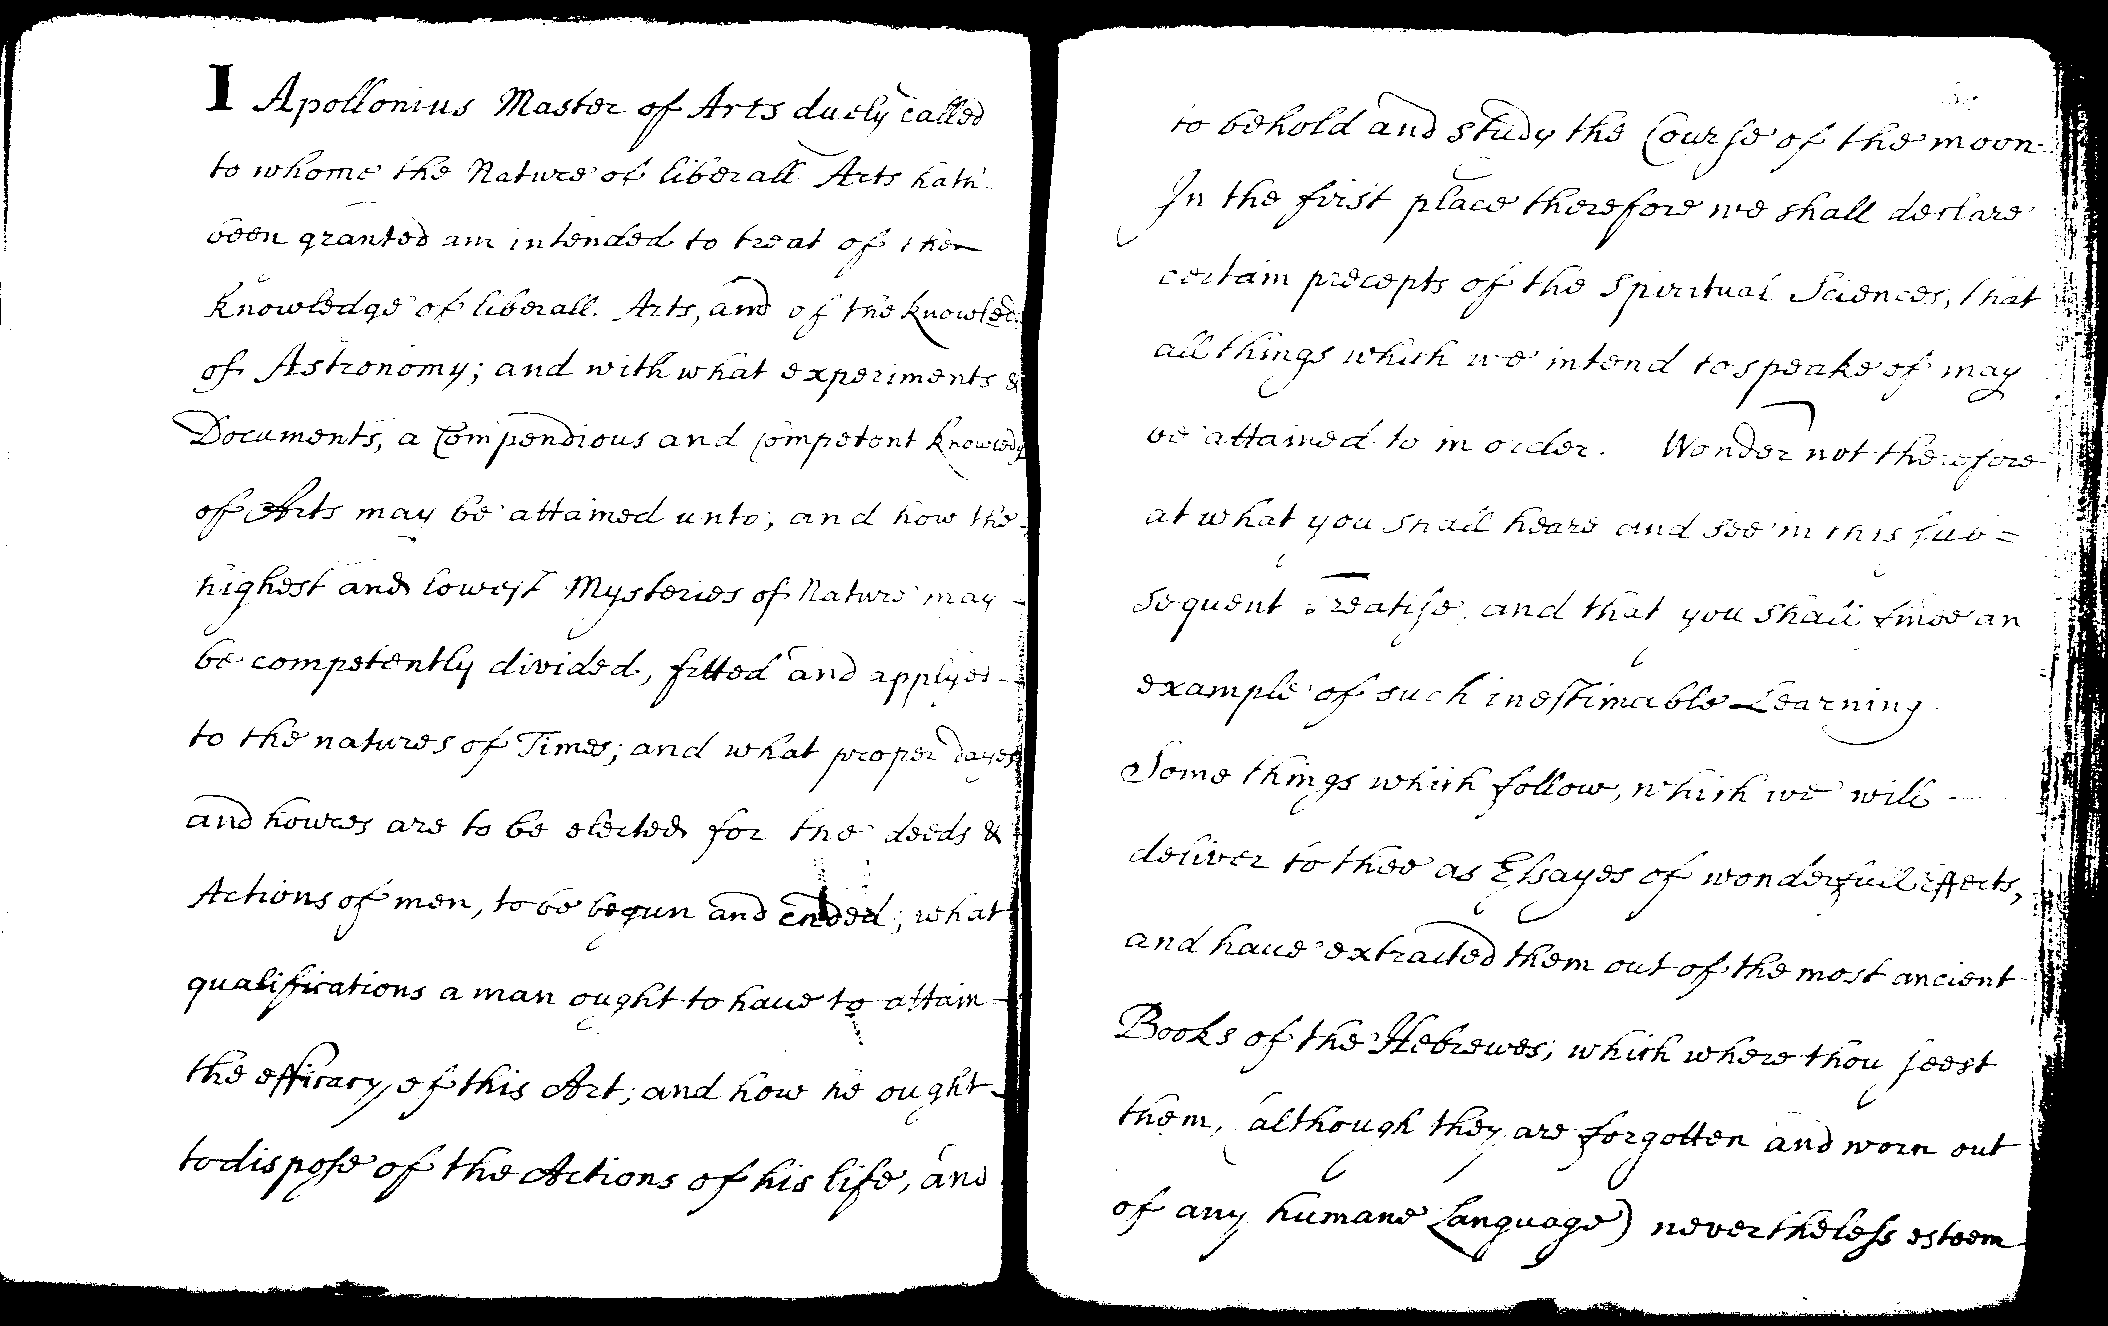 I Apollonius Master of Arts duely called
to whome the Nature of liberall Arts hath
been granted am intended to treat of the
Knowledge of liberall Arts, and of the knowledg
of Astronomy; and with what experiments &
Documents, a Compendious and Competent knowledg
of Arts may be attained unto; and how the
highest and lowest Mysteries of Nature may -
be competently divided, fitted and applyed -
to the natures of Times; and what proper dayes
and howres are to be elected for the deeds &
Actions of men, to be begun and ended; what
qualifications a man ought to have to attain -
the efficacy of this Art; and how he ought -
to dispose of the Actions of his life, and
to behold and study the Course of the moon.
In the first place therefore we shall declare
certain precepts of the Spiritual Sciences, that
all things which we intend to speake of may
be attained to in order. Wonder not therefore
at what you shall heare and see in this sub=
sequent Treatise, and that you shall finde an
example of such inestimable Learning.
Some things which follow, which we will -
deliver to thee as Essayes of wonderfull effects,
and have extracted them out of the most ancient
Books of the Hebrewes; which where thou seest
them, (although they are forgotten and worn out
of any humane Language) nevertheless esteem